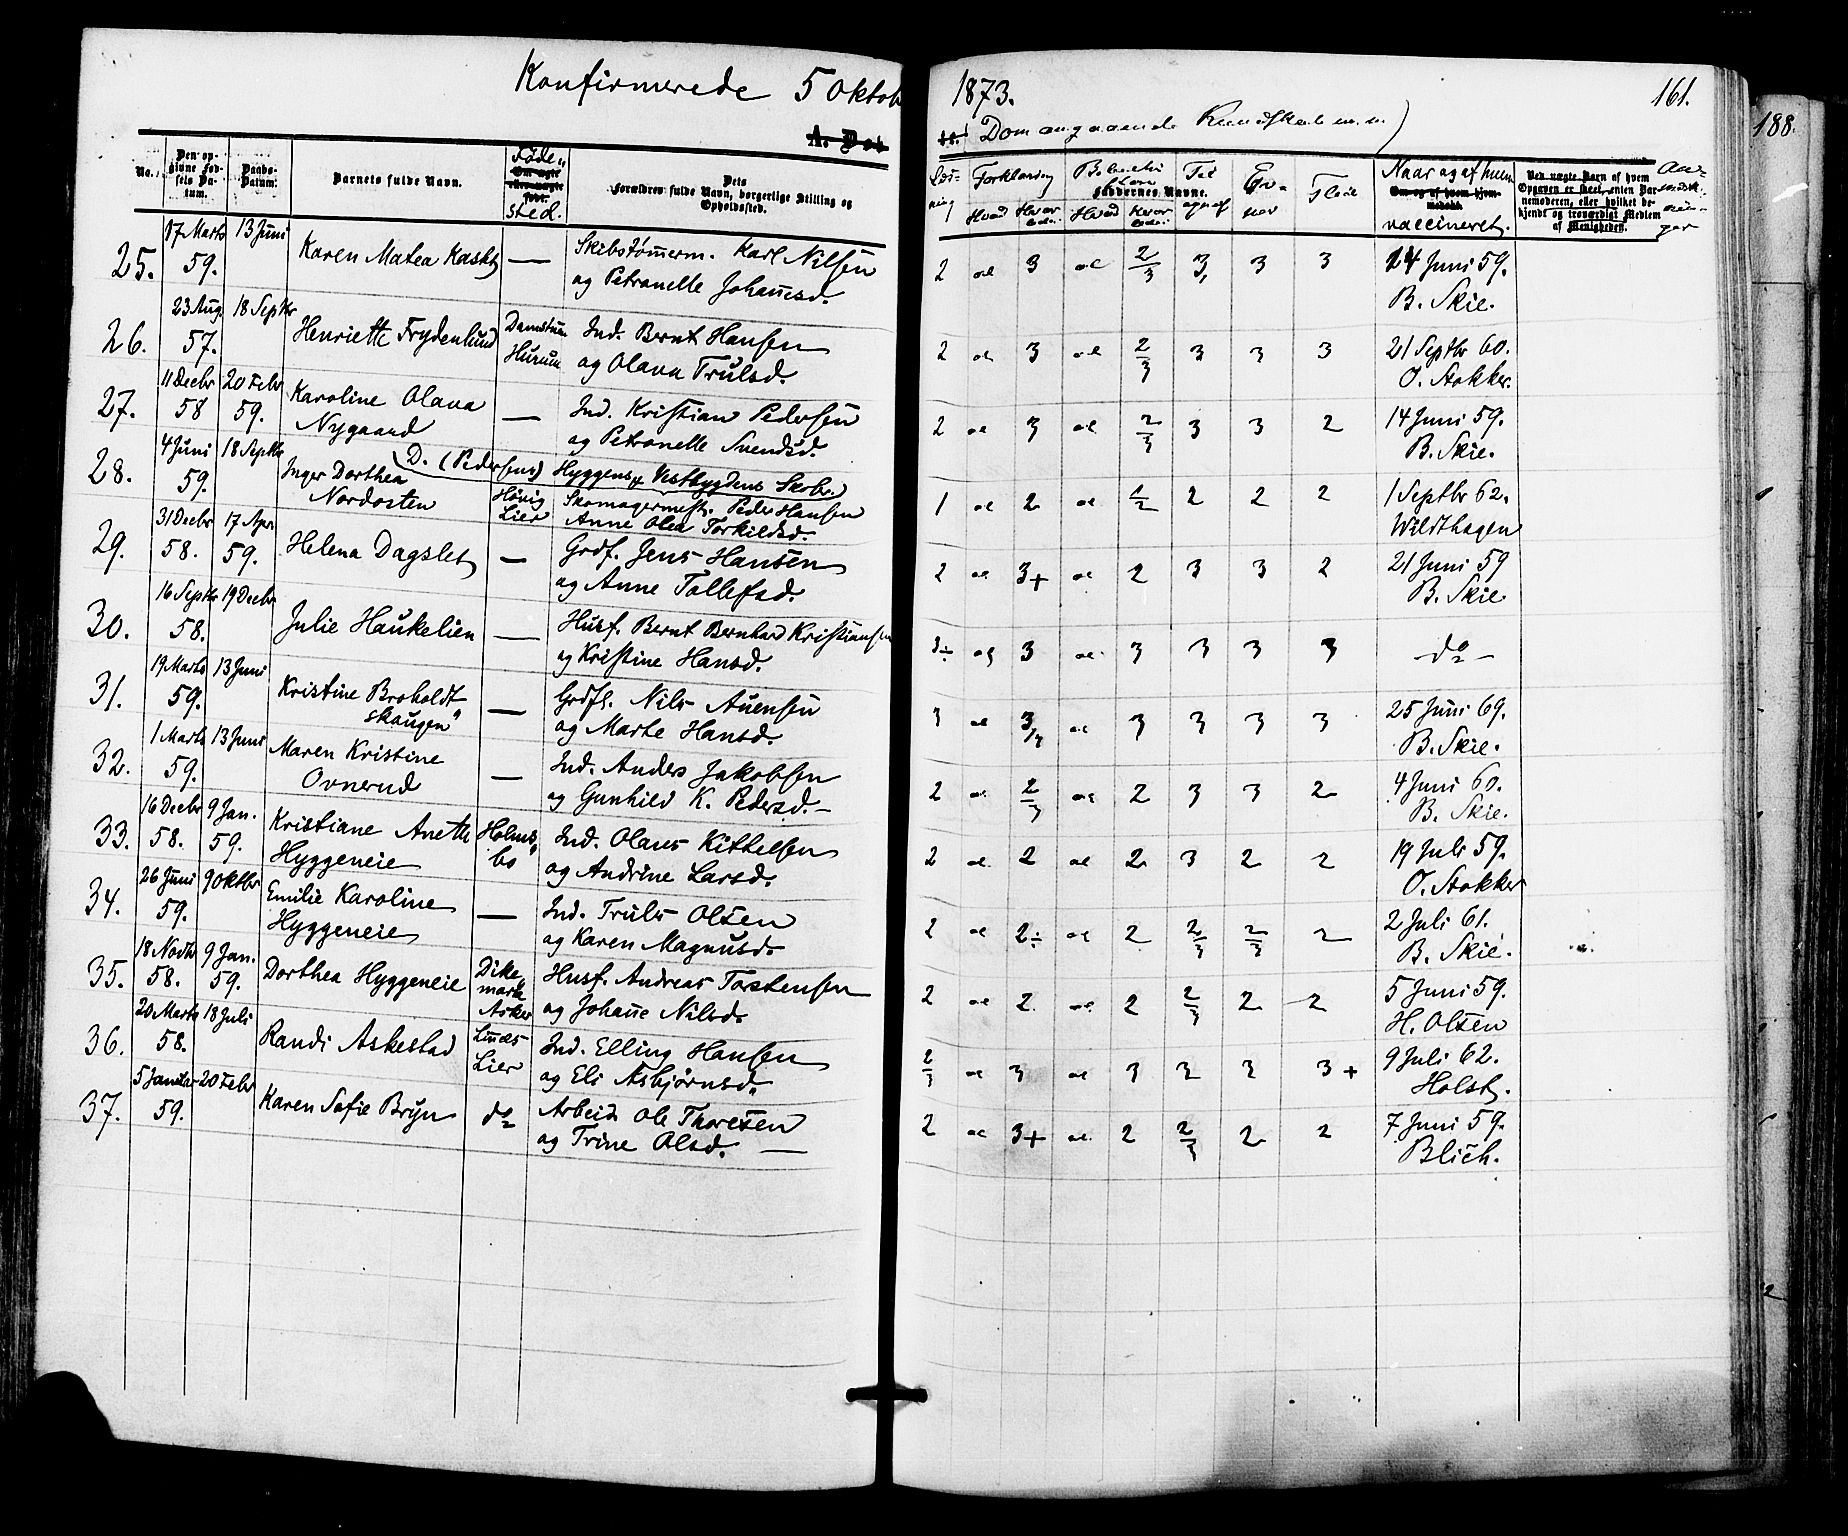 Konfirmerede 5 Oktob
1873.
161.
188.
A. Død
Dom angaaende Kundskab m.m.)
No. Den opgivne Fødsels Datum. Daabs-Datum. Barnets fulde Navn. Føde-sted. Dets Forældres fulde Navn, borgerlige Stilling og Opholdssted.
Læs-ning Forklaring Hvad Hvor-
Hvad Hvor-
Faddernes Navne.
Ev-ner Flid Naar og af hvem vaccineret.
Ved uægte Barn af hvem Opgaven er skeet, enten Barnemoderen, eller hvilket bekjendt og troværdigt Medlem af Menigheden.
25. 17 Marts 59. 13 Juni Karen Matea Kaskt — Skibstømerm. Karl Nilsen
og Petronelle Johanesd. 2 al 3 al 2/3 3 3 3 14 Juni 59.
B. Skie.
26. 23 Aug. 57. 18 Septbr Henriette Frydenlund Hurum Ind. Bernt Hansen
og Olava Trulsd. 2 al 3 al 2/3 3 3 3 21 Septbr 60.
O. Stokker.
27. 11 Decbr 58 20 Febr 59. Karoline Olava
Nygaard — Ind. Kristian Pedersen
og Petronelle Svendsd. 2 al 3 al 2/3 3 3 2 14 Juni 59.
B. Skie.
D. (Pedersens) Hyggens & Vestbygdens Skole.)
28. 4 Juni 59. 18 Septbr Inger Dorthea
Nordosten Høvig Lier Skomagermestr. Peder Hansen
Anne Olea Torkildsd. 1 al 2 al 1/2 2 2 2 1 Septbr 62.
Wildthagen
29. 31 Decbr 58. 17 Apr. 59. Helena Dagslet — Grdf. Jens Hansen
og Anne Tollefsd. 2 al 3+ al 2 3 3 2 21 Juni 59
B. Skie
30. 16 Septbr 58. 19 Decbr Julie Haukelien — Husf. Bernt Bernhard Kristiansen
og Kristine Hansd. 3÷ al 3 al 3 3 3 3 - do -
31. 19 Marts 59. 13 Juni Kristine Broholdt-
skaugen — Grdf. Nils Auensen
og Marte Hansd. 3 al al 3 3 3 3 25 Juni 69.
B. Skie.
32. 1 Marts 59. 13 Juni Maren Kristine
Ovnerud — Ind. Anders Jakobsen
og Gunhild K. Pedersd. - 2 al 2/3 al 2 3 3 2 4 Juni 60.
B. Skie.
33. 16 Decbr 58. 9 Jan. 59. Kristiane Anette
Hyggeneie Holms-bo Ind. Olaus Kittelsen
og Andrine Larsd. 2 al 2 al 2 3 2 2 19 Juli 59.
O. Stokker
34. 26 Juni 59. 9 Oktbr Emilie Karoline
Hyggeneie — Ind. Truls Olsen
og Karen Magnusd. 2 al 2÷ al 2 2/3 2/3 2 2 Juli 61.
B. Skie.
35. 18 Novbr 58. 9 Jan. 59. Dorthea Hyggeneie Dikemark Asker Husf. Andreas Torstensen
og Johane Nilsd. 2 al 2 al 2 2/3 2 2 5 Juni 59.
H. Olsen
36. 20 Marts 58. 18 Juli Randi Askestad Lier Ind. Elling Hansen
og Eli Asbjørnsd. 2/3 al 3 al 3 3 3 3+ 9 Juli 62.
Holst
37. 5 Januar 59. 20 Febr Karen Sofie Bryn do Arbeid. Ole Thoresen
og Trine Olsd. — 2 al 3+ al. 2 2/3 2 2 7 Juni 59.
Blich.